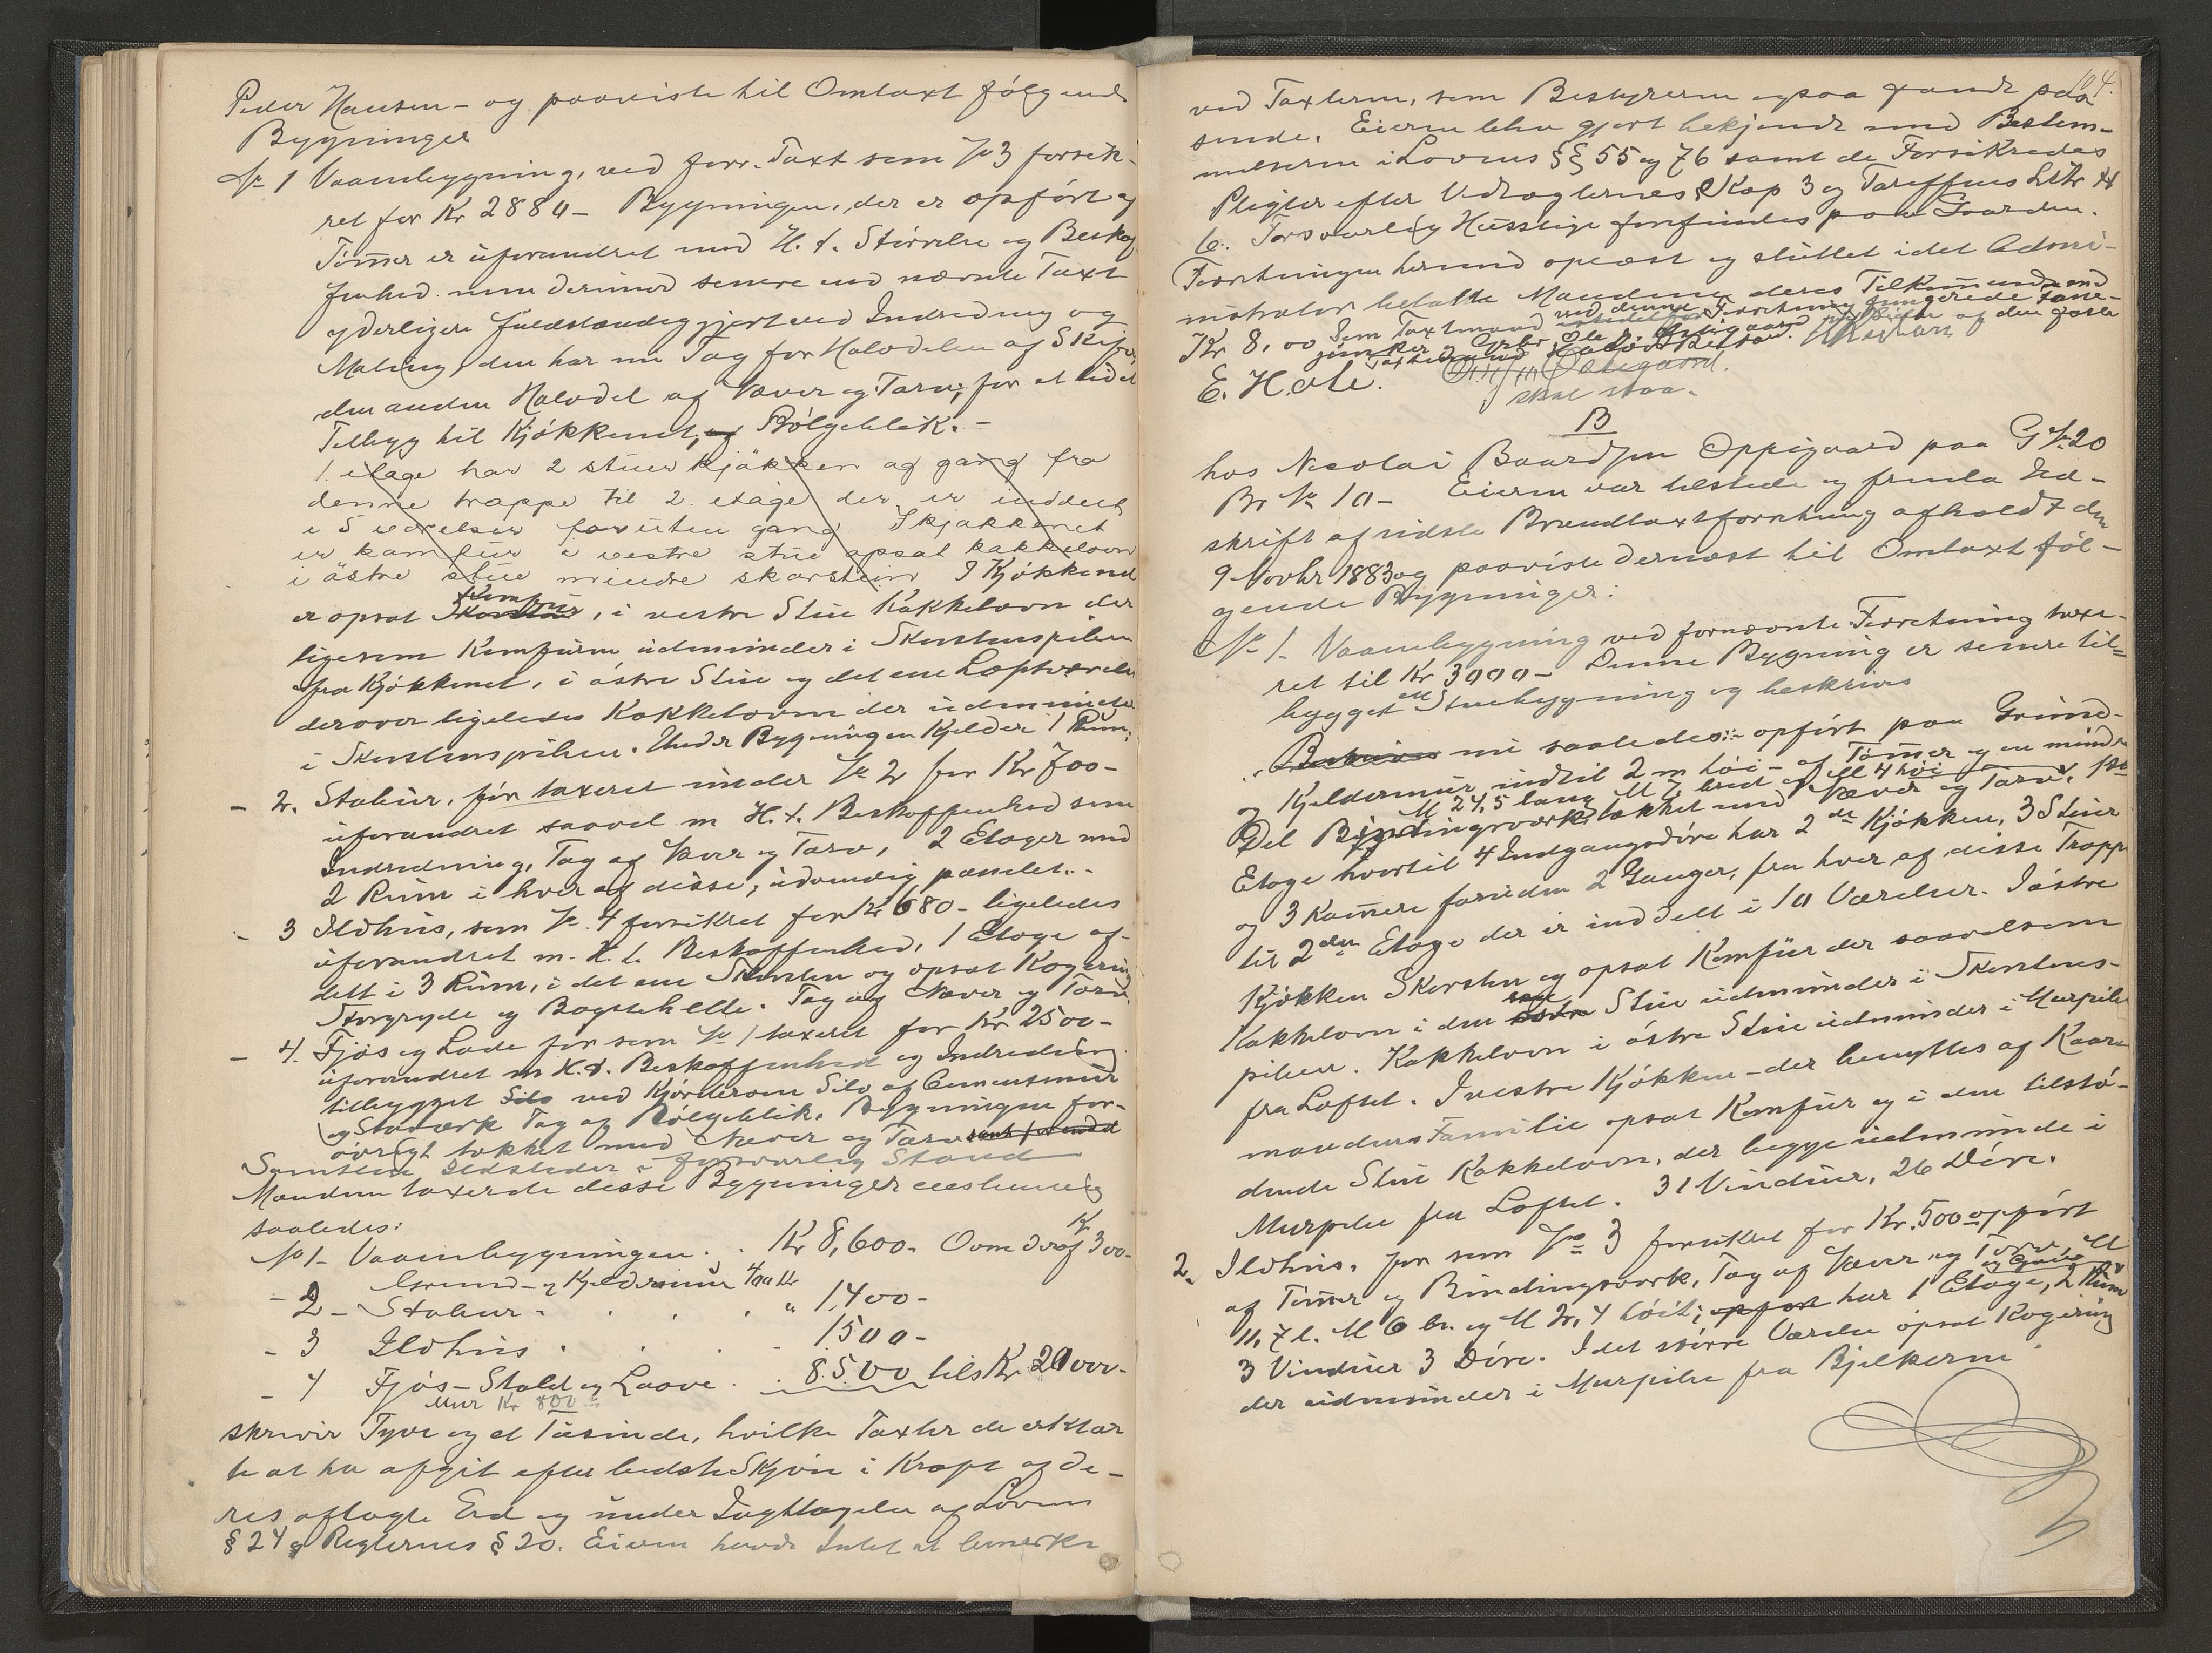 Peder Hansen - og paaviste til Omtaxt følgende
Bygninger
№ 1 Vaaningsbygning, ved forr. Taxt som № 3 forsik-
ret for Kr 2880 - Bygningen, der er opført af
Tømer er uforandret med H. t. Størrelse og Beskaf
fenhed men derimod senere end nævnte Taxt
yderligere fuldstændiggjort ved Indredning og
Maling, den har nu Tag for Halvdelen af Skifer,
den anden Halvdel af Næver og Tarv; for et lidet
Tilbygg til Kjøkkenet, af Bølgeblik. -
1. etage har 2 stuer kjøkken og gang fra
denne trappe til 2. etage der er inddelt
i 5 værelser foruten gang I kjøkkenet
er kamfur i vestre stue opsat kakkelovn
i østre stue mindre skorstein I Kjøkkenet
er opsat Komfur, i vestre Stue Kakkelovn der
ligesom Komfuren udmunder i Skorstenspiben
fra Kjøkkenet, i østre Stue og det ene Loftværelse
derover ligeledes Kakkelovn der udmunder
i Skorstenspiben. Under Bygningen Kjelder 1 Rum;
- 2. Stabur, før taxeret under № 2 for Kr 700 -
uforandret saavel m H. t. Beskaffenhed som
Indredning, Tag af Næver og Tarv, 2 Etager med
2 Rum i hver af disse, udvendig panelet. -
- 3 Ildhus, som № 4 forsikret for Kr 680 - ligeledes
uforandret m. H. t. Beskaffenhed, 1 Etage af-
delt i 3 Rum, i det ene Skorsten og opsat Kogering
Storgryde og Bagstehelle. Tag af Næver og Tarv.
- 4. Fjøs og Lade før som № 1 taxeret for Kr 2500 -
uforandret m H. t. Beskaffenhed og Indredning
tilbygget Silo ved Kjørebroen Silo af Cementmur
og Stavverk Tag af Bølgeblik. Bygningen for-
øvrigt tækket med Næver og Tarv
Samtlige Ildsteder i forsvarlig Stand
Mændene taxerede disse Bygninger eenstemmig
saaledes:
№ 1 - Vaaningsbygningen . . Kr 8,600 - Ovne deraf Kr 300 -
Grund - og Kjeldermur 400 Kr
- 2 - Stabur . . . . " 1,400 -
- 3 Ildhus . . . - 1500 -
- 4 Fjøs - Stald og Laave . . 8.500 tils Kr 20000 -
Mur Kr 800 -
skriver Tyve og et Tusinde, hvilke Taxter de erklær
te at ha afgit efter bedste Skjøn i Kraft af de-
res aflagte Ed og under Iagttagelse af Lovens
§ 24 og Reglernes § 20. Eieren havde Intet at bemerke
104.
ved Taxterne, som Bestyreren ogsaa fandt pas
sende. Eieren blev gjort bekjendt med Bestem-
melserne i Lovens §§ 55 og 76 samt de Forsikredes
Pligter efter Vedtægternes Kap 3 og Tariffens Litr H
6. Forsvarlig Husstige forfindes paa Gaarden.
Forretningen hermed oplæst og sluttet idet Admi-
nistrator betalte Mændene deres Tilkomende med
Kr 8,00 Som Taxtmand ved denne Forretning fungerede
E. Hole. Ole J. Østigaard.
skal staa.
B
hos Nicolai Baardsen Oppigaard paa G № 20
Br № 10 - Eieren var tilstede og fremla Ud-
skrift af sidste Brandtaxtforretning afholdt den
9 Novbr 1883 og paaviste dernæst til Omtaxt føl-
gende Bygninger:
№ 1. Vaaningsbygning ved fornævnte Forretning taxe-
ret til Kr 3000 - Denne Bygning er senere til-
bygget en Stuebygning og beskrives
Beskrives nu saaledes: - opført paa Grund-
og Kjeldermur indtil 2 m høi - af Tømer og en mindre
M 24,5 lang M 7 bred og M 4 høi
Del Bindingsværk, tækket med Næver og Tarv. 1ste
Etage hvortil 4 Indgangsdøre har 2 de Kjøkken, 3 Stuer
og 3 Kamere foruden 2 Gange, fra hver af disse Trappe
til 2den Etage der er inddelt i 10 Værelser. I østre
Kjøkken Skorsten og opsat Komfur der saavelsom
Kakkelovn i den østre Stue udmunder i Skorstens-
piben. Kakkelovn i østre Stue udmunder i Murpibe
fra Loftet. I vestre Kjøkken - der benyttes af Kaar-
mandens Familie opsat Komfur og i den tilstø-
dende Stue Kakkelovn, der begge udmunde i
Murpibe fra Loftet. 31 Vinduer, 26 Døre.
2. Ildhus, før som № 3 forsikret for Kr. 500 opført
af Tømer og Bindingsverk, Tag af Næver og Torv M
11,7 l. M 6 br. og M 2,4 høit; opført har 1 Etage, 2 Rum og Gang
3 Vinduer 3 Døre. I det større Værelse opsat Kogering
der udmunder i Murpibe fra Bjelkerne